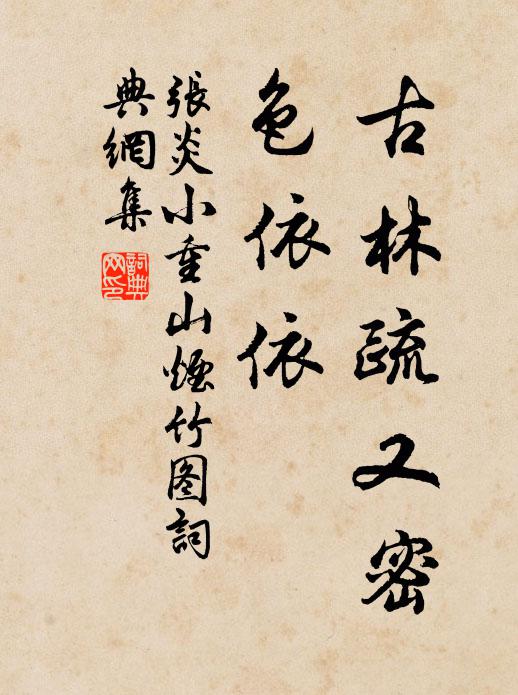 古林疏又密
色依依
張炎小重山煙竹图詞
典網集
詞典网印